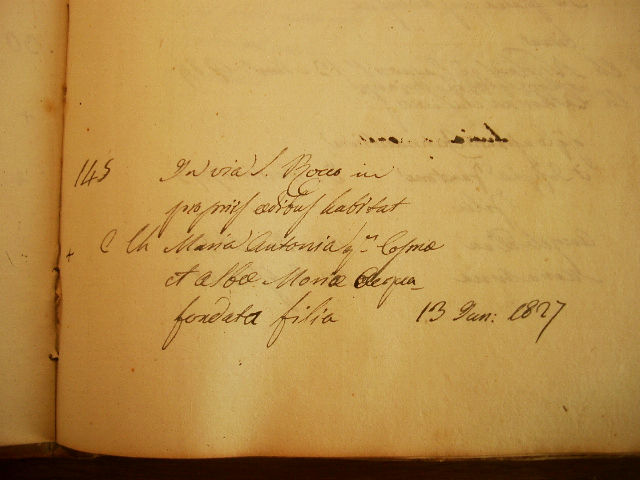 145 In via S. Rocco in
propriis ædibus habitat
+ C Ch Maria Antonia q.m Cosmæ
et Albæ Mariæ Acqua-
fondata filia 13 Jan: 1827